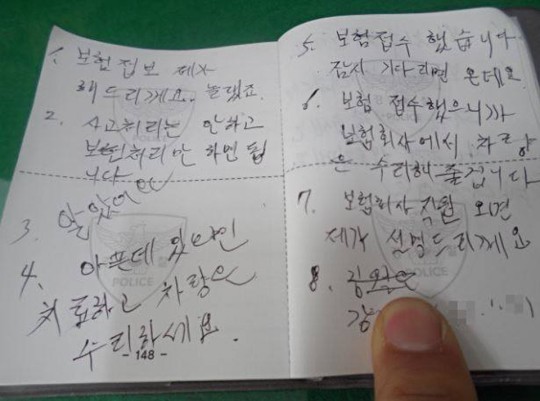 1. 보험접보 제가
해드리께요. 놀랬죠.
2. 사고처리는 안하고
보험처리만 하면 됩
니다
3. 알았어요
4. 아픈데 있으면
치료하고 차량은
수리하세요.
- 148 -
POLICE
POLICE
5. 보험접수 했습니다
잠시 기다리면 온데요
6. 보험 접수했으니가
보험회사에서 차량
은 수리해 줄겁니다
7. 보험회사 직원 오면
제가 설명드리께요
8.
감
POLICE